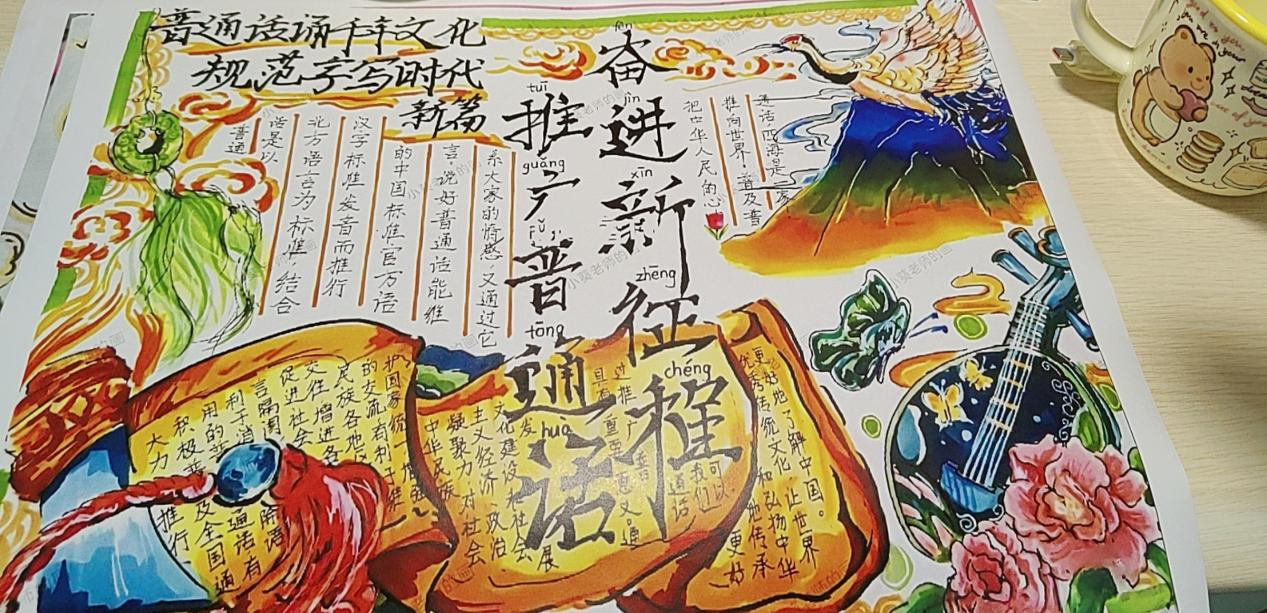 普通话诵千年文化
规范字写时代
新篇
fèn
奋
jìn
进
xīn
新
zhēng
征
chéng
程
tuī
推
guǎng
广
pǔ
普
tōng
通
huà
话
普通
话是以
北方语言为标准,结合
汉字标准发音而推行
的中国标准官方语
言,说好普通话能维
系大家的情感,又通过它
把中华人民的心
推向世界,普及普
通话,四海是一家
大力推行
积极普及全国通
用的
利于消
言隔阂
促进社会
交往,增进各
民族各地
的交流有利于
护国家统一,增强
中华民族
凝聚力,对社会
主义经济,政治
文化建设和社会
发展
具有重要意义,通
过推广普通话
我们可以
更好地了解中国。
优秀传统文化,让世界
和弘扬中华
更好地传承
小葵老师的画
you are in your